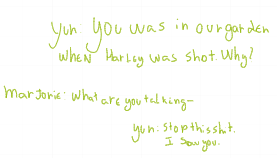 Yuh: You was in our garden
when Harley was shot. Why?
Marjorie: What are you talking-
yuh: Stop this shit.
I saw you.